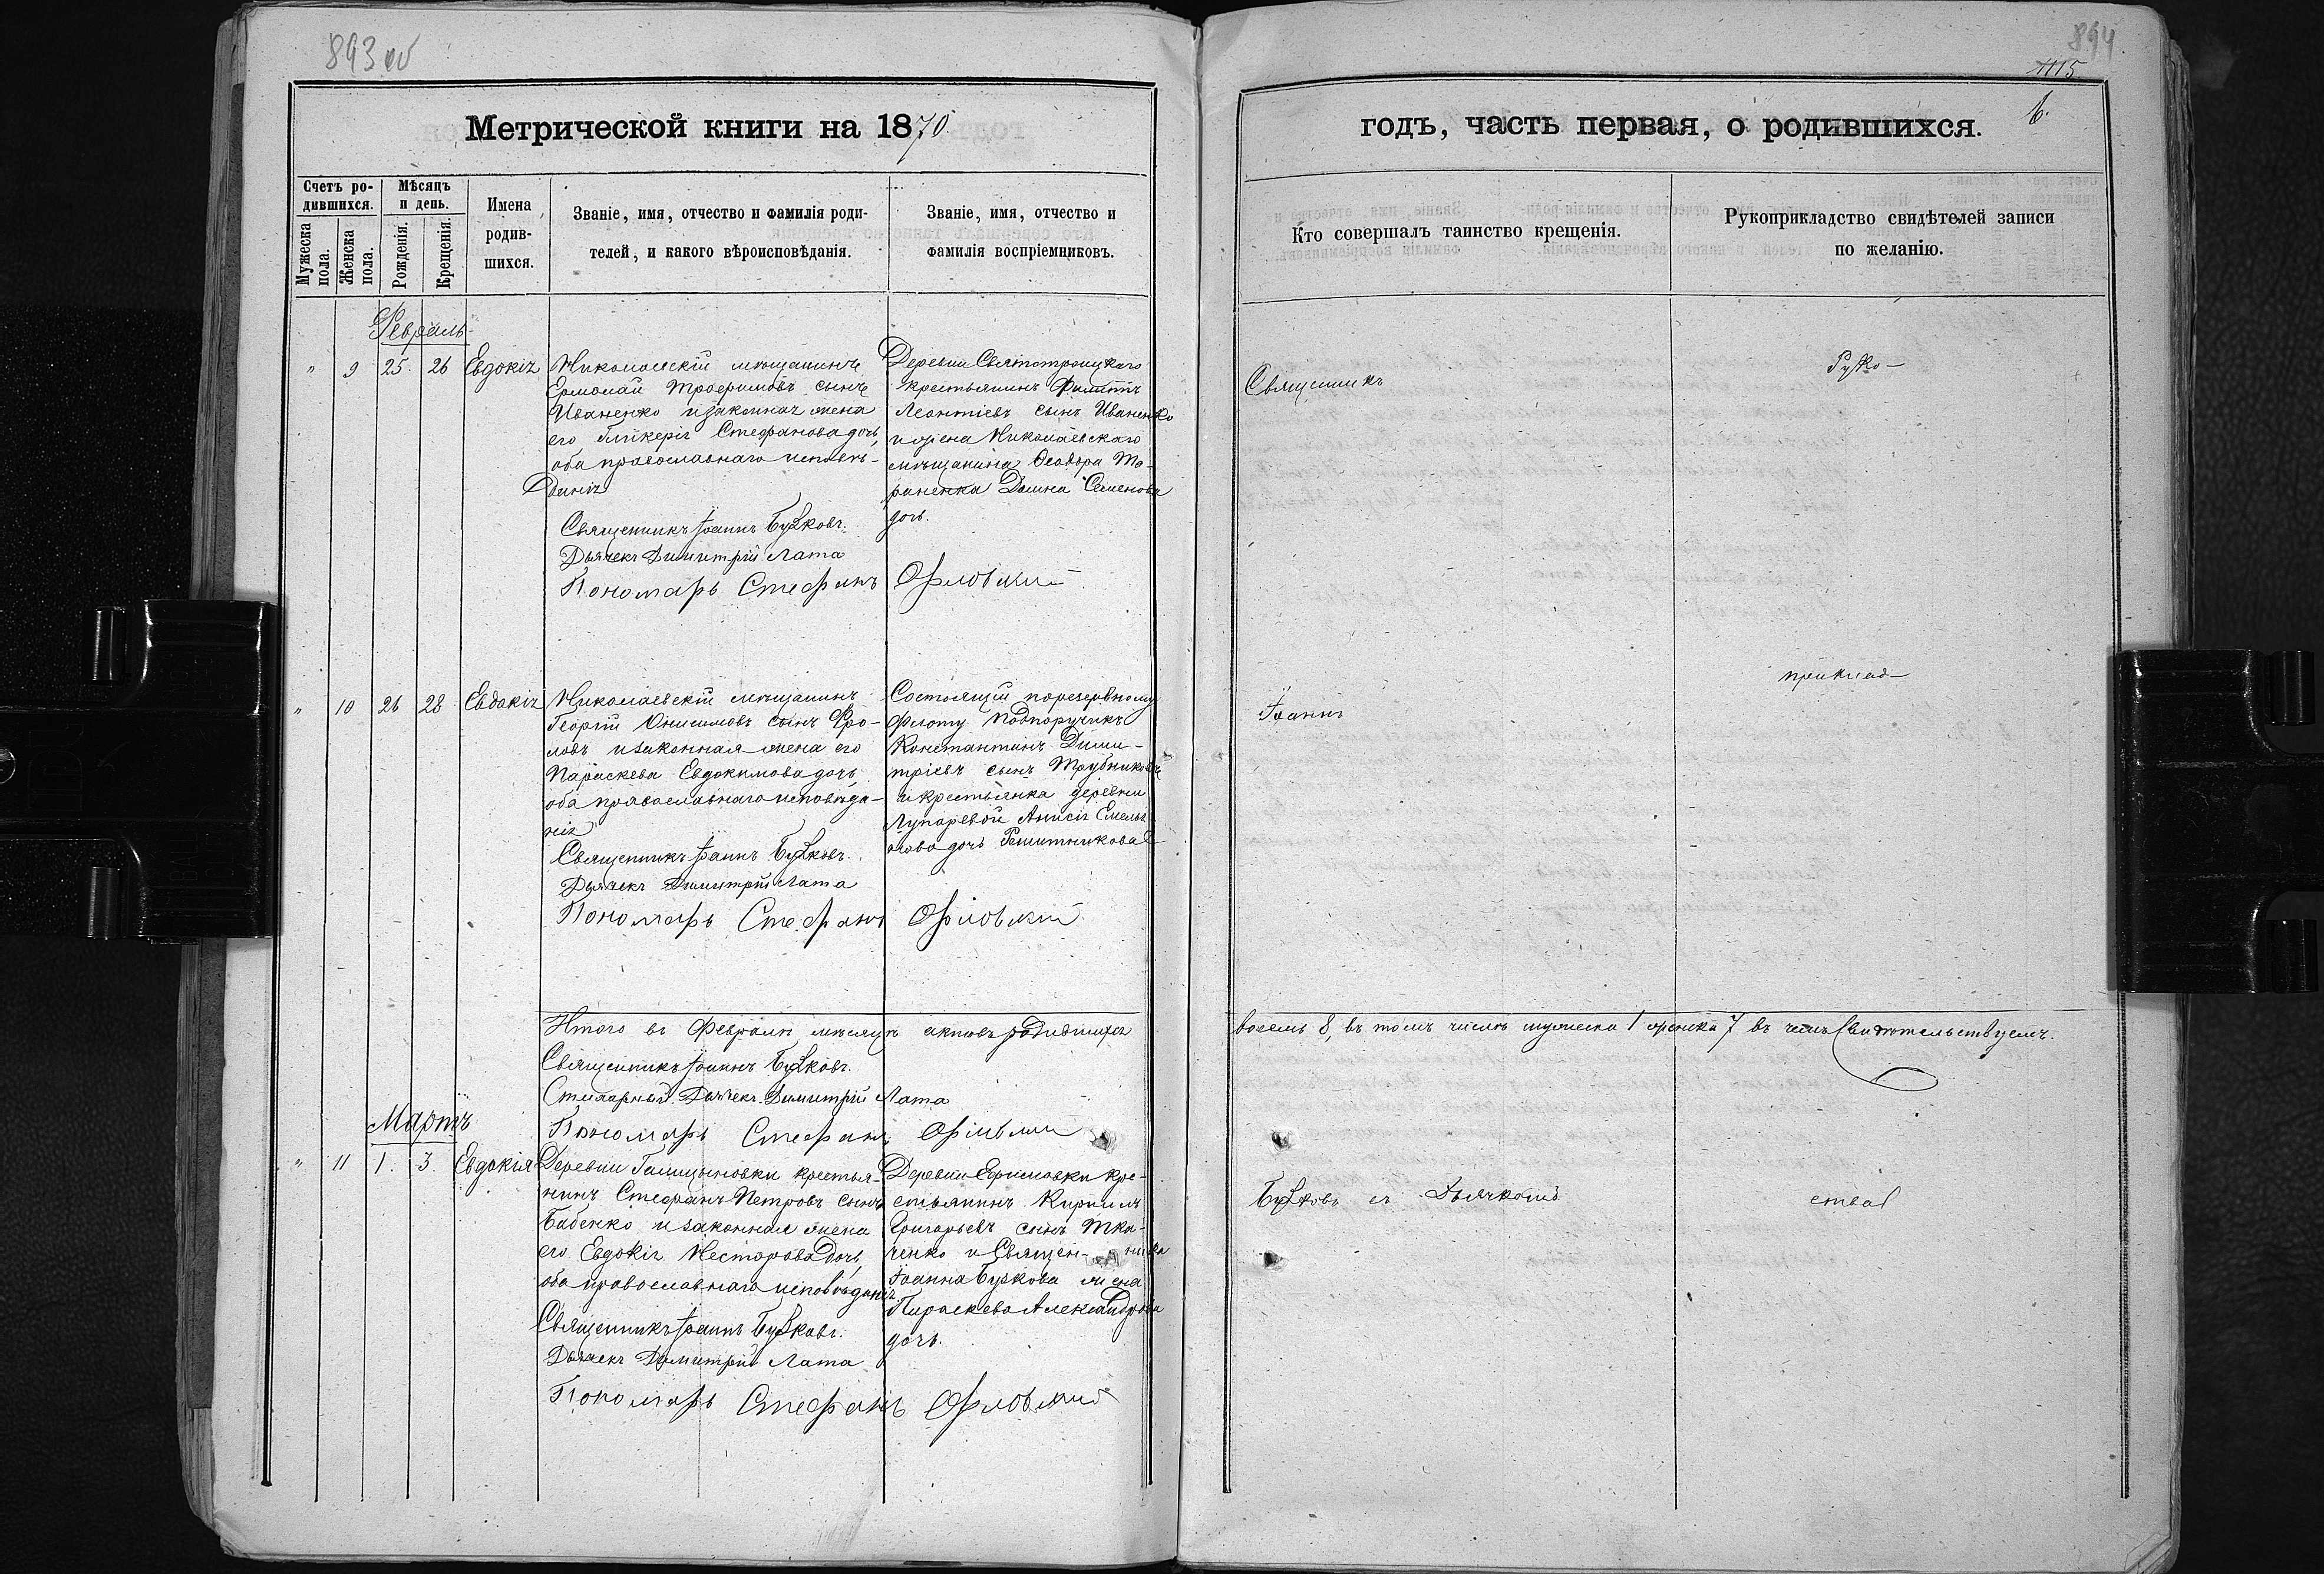 893 об
Метрической книги на 1870
Счетъ ро-
дившихся.
Мѣсяцъ
и день.
Мужеска
пола.
Женска
пола.
Рожденія.
Крещенія.
Имена
родив-
шихся.
Званіе, имя, отчество и фамилія роди-
телей, и какого вѣроисповѣданія.
Званіе, имя, отчество и
фамилія воспріемниковъ.
Февраль
" 9 25. 26 Евдокія
Николаевскій мѣщанинъ
Ермолай Трофимовъ сынъ
Иваненко и законная жена
его Гликерія Стефанова дочь,
оба православнаго исповѣ-
данія
Священникъ Іоаннъ
Дьячекъ Димитрій Лата
Пономарь Стефанъ Орловскій
Деревни Святотроицкаго
крестьянинъ Филиппъ
Леонтіевъ сынъ Иваненко
и жена Николаевскаго
мѣщанина Ѳеодора Та-
раненка Домна Семенова
дочь.
" 10 26 28 Евдокія
Николаевскій мѣщанинъ
Георгій Онисимовъ сынъ Фро-
ловъ и законная жена его
Параскева Евдокимова дочь
оба православнаго исповѣда-
нія
Священникъ Іоаннъ
Дьячекъ Димитрій Лата
Пономарь Стефанъ Орловскій
Состоящій по резервному
флоту Подпоручикъ
Константинъ Дими-
тріевъ сынъ Трубниковъ
и крестьянка деревни
Лупаревой Анисія Емелья
нова дочь Решитникова
Итого въ Февралѣ мѣсяцѣ актовъ родившихся
Священникъ Іоаннъ
Стихарный Дьячекъ Димитрій Лата
Пономарь Стефанъ Орловскій
Мартъ
" 11 1. 3. Евдокія
Деревни Галицыновки крестья-
нинъ Стефанъ Петровъ сынъ
Бабенко и законная жена
его Евдокія Несторова дочь,
оба православнаго исповѣданія
Священникъ Іоаннъ
Дьячекъ Димитрій Лата
Пономарь Стефанъ Орловскій
Деревни Ефимовки кре-
стьянинъ Кириллъ
Григорьевъ сынъ Тка-
ченко и Священ- ника
Іоанна жена
Параскева Александрова
дочь.
894
1115
6.
годъ, часть первая, о родившихся.
Кто совершалъ таинство крещенія.
Рукоприкладство свидѣтелей записи
по желанію.
Священникъ
Руко-
Іоаннъ
приклад-
восемь 8, въ томъ числѣ мужеска 1 женска 7 въ чемъ Свидѣтельствуемъ.
съ Дьячкомъ
ства